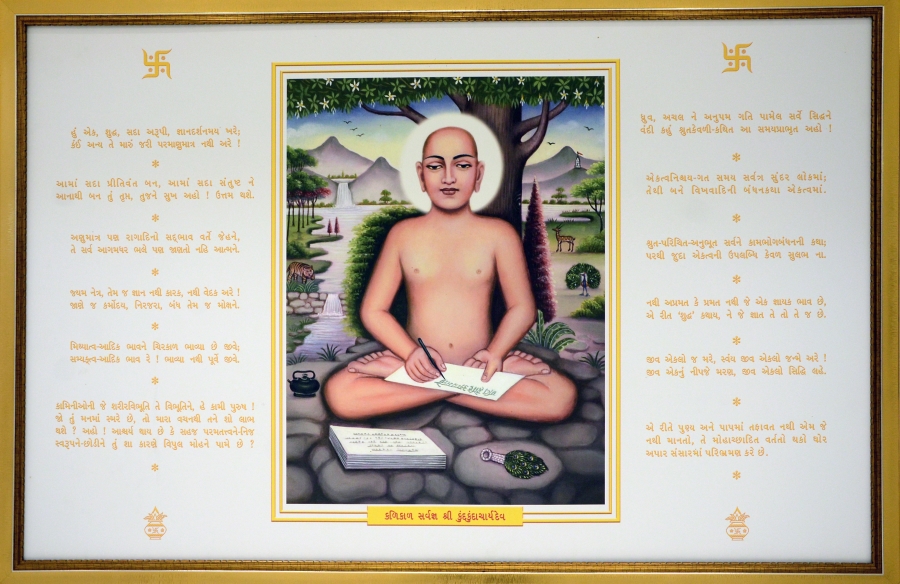 હું એક, શુદ્ધ, સદા અરૂપી, જ્ઞાનદર્શનમય ખરે;
કંઈ અન્ય તે મારું જરી પરમાણુમાત્ર નથી અરે !
આમાં સદા પ્રીતિવંત બન, આમાં સદા સંતુષ્ટ ને
આનાથી બન તું તૃપ્ત, તુજને સુખ અહો ! ઉત્તમ થશે.
અણુમાત્ર પણ રાગાદિનો સદ્ભાવ વર્તે જેહને,
તે સર્વ આગમધર ભલે પણ જાણતો નહિ આત્મને.
જ્યમ નેત્ર, તેમ જ જ્ઞાન નથી કારક, નથી વેદક અરે !
જાણે જ કર્મોદય, નિરજરા, બંધ તેમ જ મોક્ષને.
મિથ્યાત્વ-આદિક ભાવને ચિરકાળ ભાવ્યા છે જીવે;
સમ્યક્ત્વ-આદિક ભાવ રે ! ભાવ્યા નથી પૂર્વે જીવે.
કામિનીઓની જે શરીરવિભૂતિ તે વિભૂતિને, હે કામી પુરુષ !
જો તું મનમાં સ્મરે છે, તો મારા વચનથી તને શો લાભ
થશે ? અહો ! આશ્ચર્ય થાય છે કે સહજ પરમતત્ત્વને-નિજ
સ્વરૂપને-છોડીને તું શા કારણે વિપુલ મોહને પામે છે ?
કળિકાળ સર્વજ્ઞ શ્રી કુંદકુંદાચાર્યદેવ
ધ્રુવ, અચલ ને અનુપમ ગતિ પામેલ સર્વે સિદ્ધને
વંદી કહું શ્રુતકેવળી-કથિત આ સમયપ્રાભૃત અહો !
એકત્વનિશ્ચય-ગત સમય સર્વત્ર સુંદર લોકમાં;
તેથી બને વિખવાદિની બંધનકથા એકત્વમાં.
શ્રુત-પરિચિત-અનુભૂત સર્વને કામભોગબંધનની કથા;
પરથી જુદા એકત્વની ઉપલબ્ધિ કેવળ સુલભ ના.
નથી અપ્રમત્ત કે પ્રમત્ત નથી જે એક જ્ઞાયક ભાવ છે,
એ રીત 'શુદ્ધ' કથાય, ને જે જ્ઞાત તે તો તે જ છે.
જીવ એકલો જ મરે, સ્વયં જીવ એકલો જન્મે અરે !
જીવ એકનું નીપજે મરણ, જીવ એકલો સિદ્ધિ લહે.
એ રીતે પુણ્ય અને પાપમાં તફાવત નથી એમ જે
નથી માનતો, તે મોહાચ્છાદિત વર્તતો થકો ઘોર
અપાર સંસારમાં પરિભ્રમણ કરે છે.